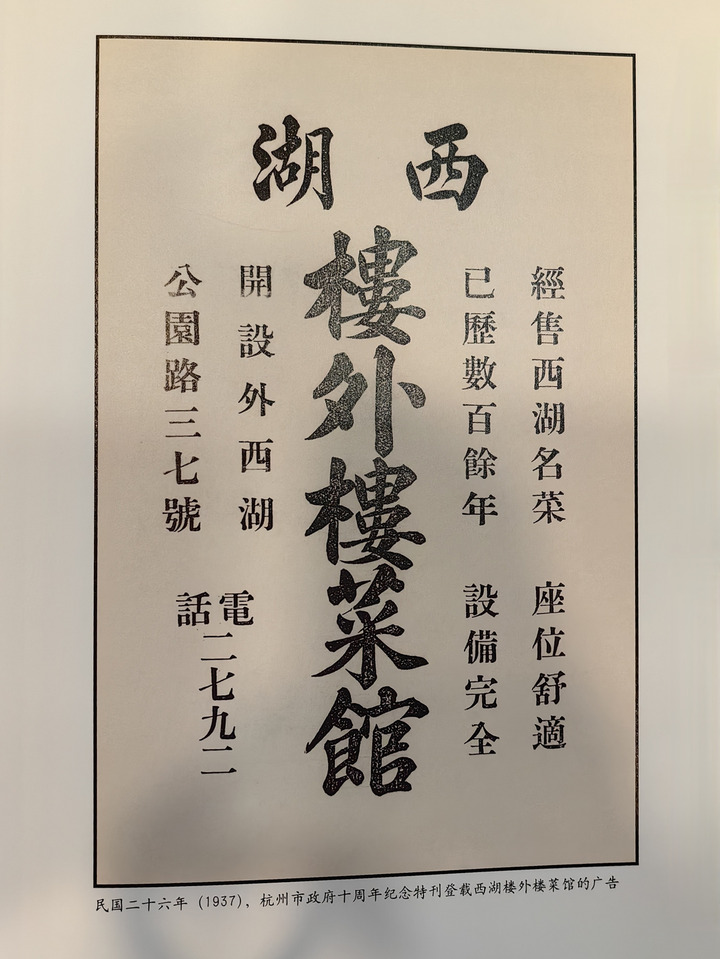 西湖
經售西湖名菜 座位舒適
已歷數百餘年 設備完全
樓外樓菜館
開設外西湖
公園路三七號
電話
二七九二
民国二十六年 (1937)，杭州市政府十周年纪念特刊登载西湖楼外楼菜馆的广告